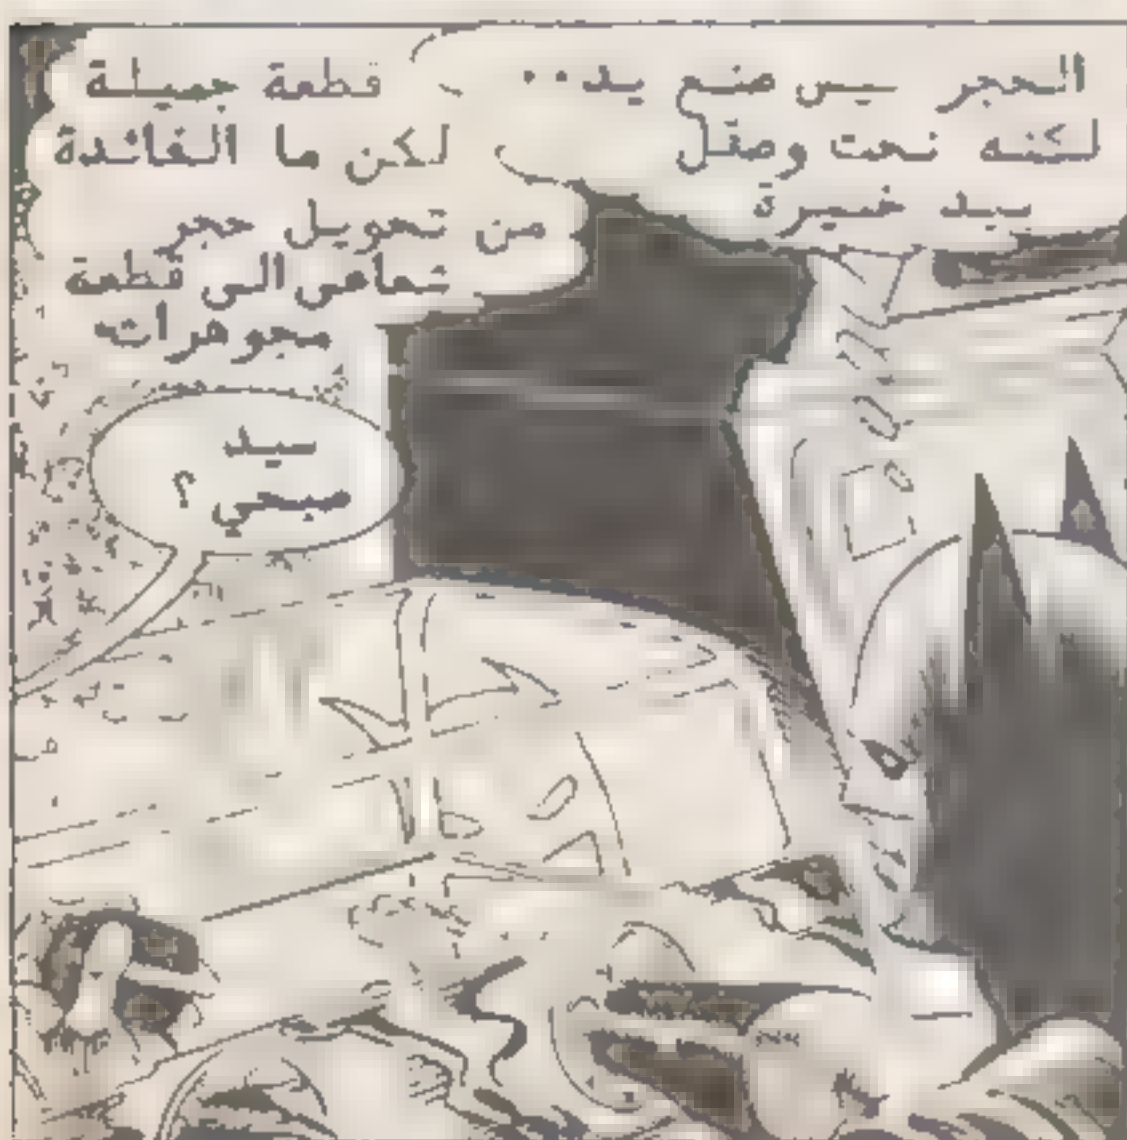 الحجر ليس صنع يد..
لكنه نحت وصقل
بيد خبيرة
قطعة جميلة
لكن ما الفائدة
من تحويل حجر
شعاعي الى قطعة
مجوهرات
سيد
صبحي ؟